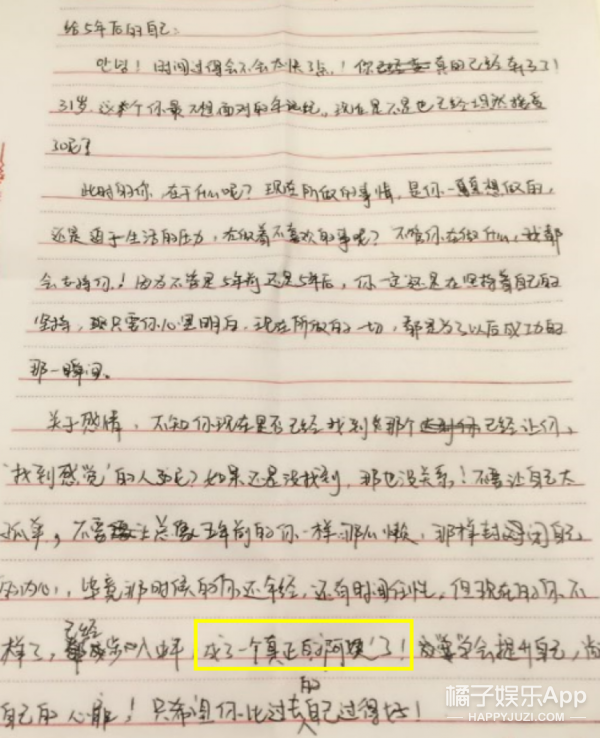 给5年后的自己：
安好！时间过得会不会太快了点！你真的已经奔3了！
31岁，这个你最不想面对的年纪，现在是不是也已经坦然接受
30呢？
此时的你，在干什么呢？现在所做的事情，是你一直想做的，
还是迫于生活的压力，在做着不喜欢的事呢？不管你在做什么，我都
会支持你！因为不管是5年前还是5年后，你一定还是在坚持着自己的
坚持，只要你心里明白，现在所做的一切，都是为了以后成功的
那一瞬间。
关于感情，不知你现在是否已经找到了那个已经让你
“找到感觉”的人呢？如果还是没找到，那也没关系！不要让自己太
孤单，不要让五年前的你一样那么懒，那样封闭自己
的内心，毕竟那时候的你还年轻，还有时间任性，但现在的你不
样了，已经步入中年，成了一个真正的‘阿姨’了！学会提升自己，
自己的心脏！只希望你比过去的自己过得好！
橘子娱乐App
HAPPYJUZI.COM